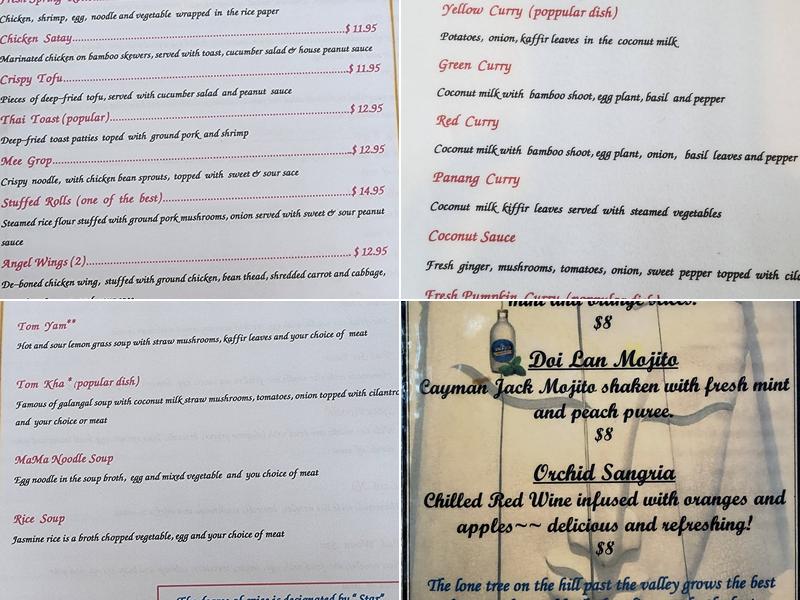 Fresh Spring
Chicken, shrimp, egg, noodle and vegetable wrapped in the rice paper
Chicken Satay........$ 11.95
Marinated chicken on bamboo skewers, served with toast, cucumber salad & house peanut sauce
Crispy Tofu........$ 11.95
Pieces of deep-fried tofu, served with cucumber salad and peanut sauce
Thai Toast (popular)........$ 12.95
Deep-fried toast patties toped with ground pork and shrimp
Mee Grop........$ 12.95
Crispy noodle, with chicken bean sprouts, topped with sweet & sour sace
Stuffed Rolls (one of the best)........$ 14.95
Steamed rice flour stuffed with ground pork mushrooms, onion served with sweet & sour peanut
sauce
Angel Wings (2)........$ 12.95
De-boned chicken wing, stuffed with ground chicken, bean thead, shredded carrot and cabbage,
Yellow Curry (poppular dish)
Potatoes, onion, kaffir leaves in the coconut milk
Green Curry
Coconut milk with bamboo shoot, egg plant, basil and pepper
Red Curry
Coconut milk with bamboo shoot, egg plant, onion, basil leaves and pepper
Panang Curry
Coconut milk kiffir leaves served with steamed vegetables
Coconut Sauce
Fresh ginger, mushrooms, tomatoes, onion, sweet pepper topped with cila
Fresh Pumpkin Curry (poppular dish)
Tom Yam**
Hot and sour lemon grass soup with straw mushrooms, kaffir leaves and your choice of meat
Tom Kha * (popular dish)
Famous of galangal soup with coconut milk straw mushrooms, tomatoes, onion topped with cilantro
and your choice or meat
MaMa Noodle Soup
Egg noodle in the soup broth, egg and mixed vegetable and you choice of meat
Rice Soup
Jasmine rice is a broth chopped vegetable, egg and your choice of meat
The degree of spice is designated by "Star"
mint and orange slices.
$8
Doi Lan Mojito
Cayman Jack Mojito shaken with fresh mint
and peach puree.
$8
Orchid Sangria
Chilled Red Wine infused with oranges and
apples~~ delicious and refreshing!
$8
The lone tree on the hill past the valley grows the best